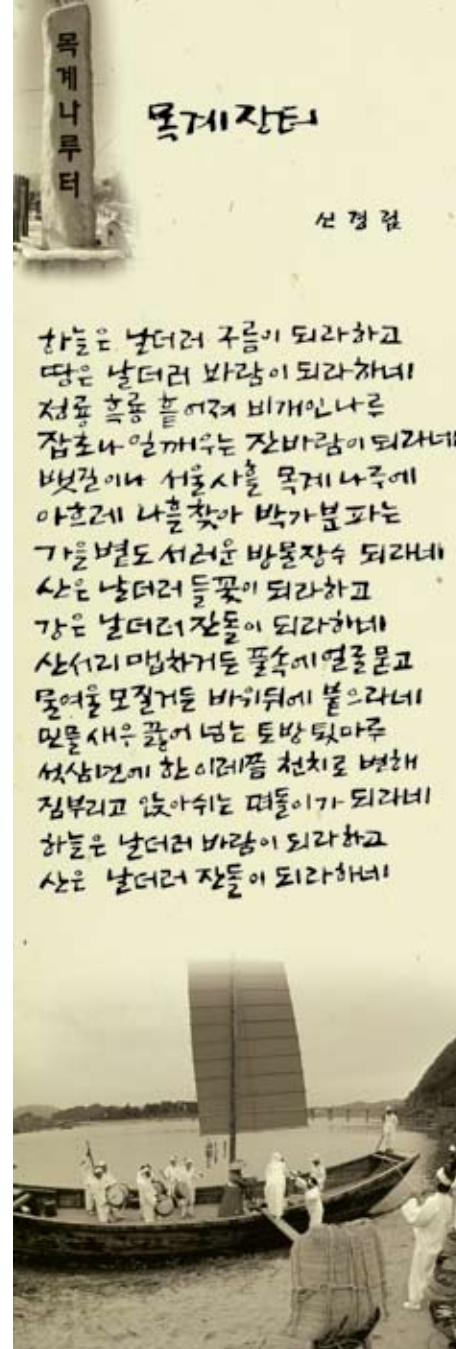 목계나루터
목계장터
신경림
하늘은 날더러 구름이 되라하고
땅은 날더러 바람이 되라하네
청룡 흑룡 흩어져 비개인나루
잡초나 일깨우는 잔바람이되라네
뱃길이나 서울사흘 목계나루에
아흐레 나흘찾아 박가분파는
가을볕도서러운 방물장수 되라네
산은 날더러 들꽃이 되라하고
강은 날더러 잔돌이 되라하네
산서리 맵차거든 풀속에얼굴묻고
물여울모질거든 바위뒤에 붙으라네
민물새우 끓어 넘는 토방 툇마루
석삼년에 한이레쯤 천치로 변해
짐부리고 앉아쉬는 떠돌이가 되라네
하늘은 날더러 바람이 되라하고
산은 날더러 잔돌이 되라하네